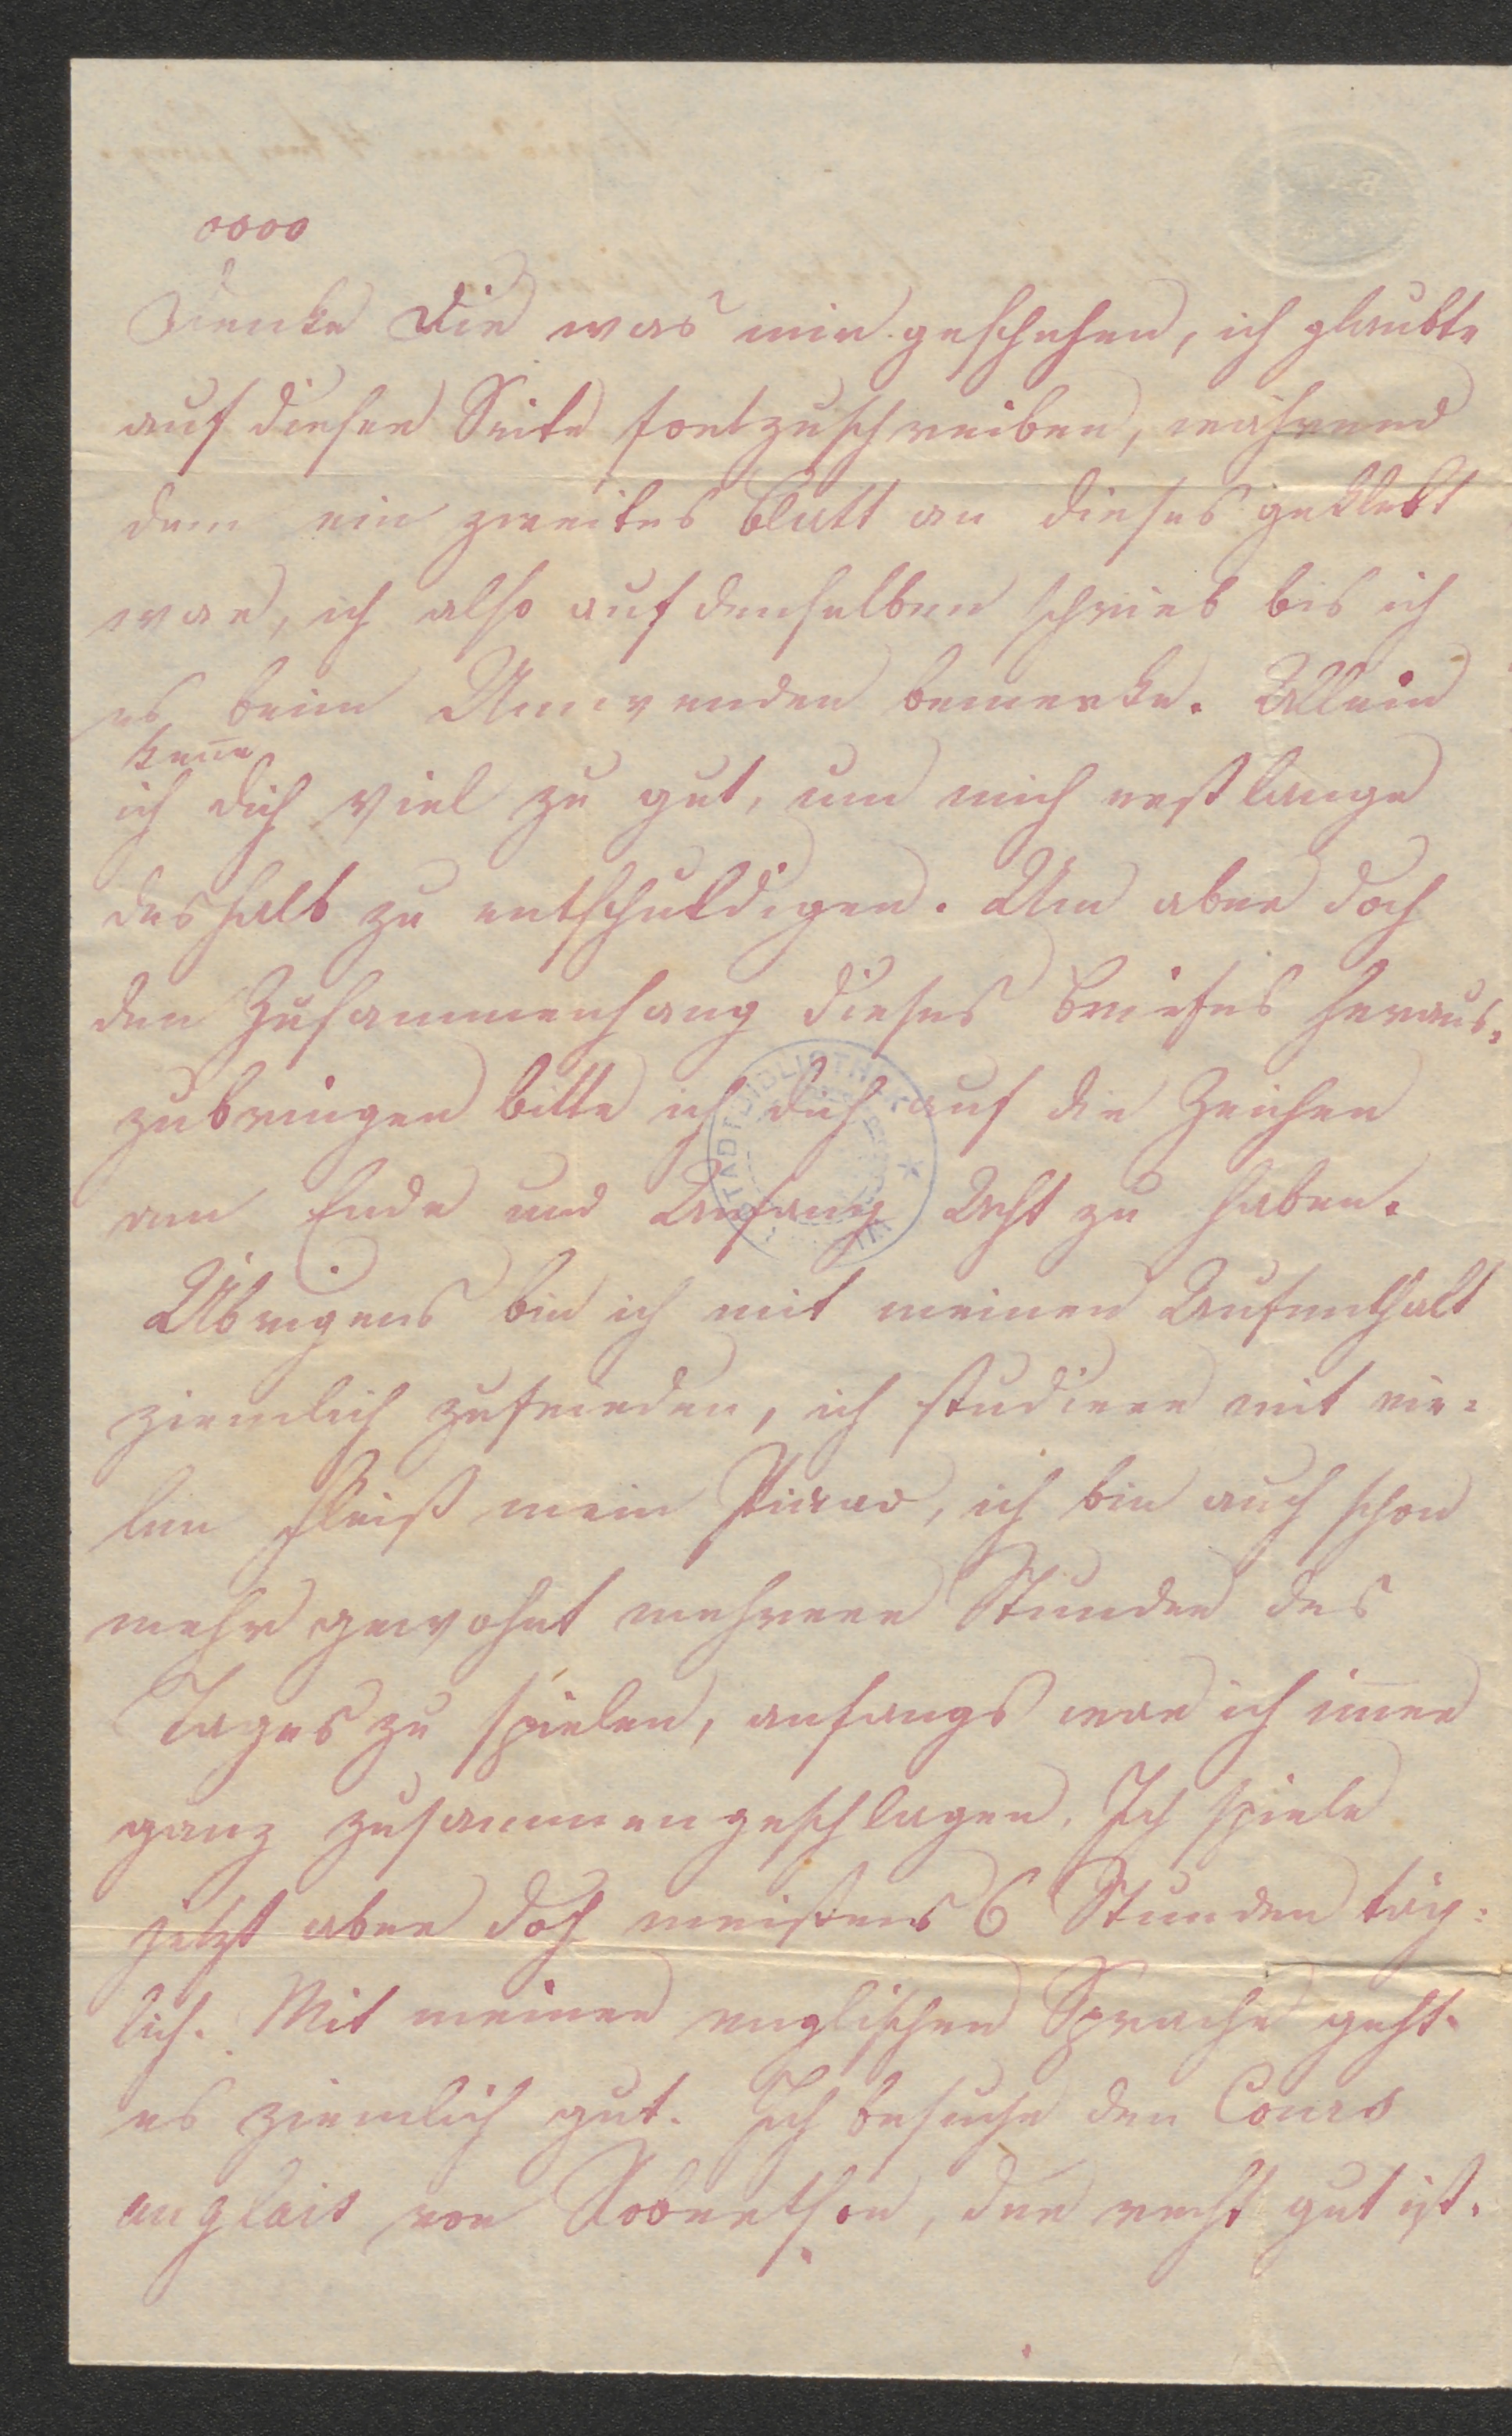 oooo
Denke Dir was mir geschehen, ich glaubte
auf dieser Seite fortzuschreiben, während
dem ein zweites Blatt an dieses geklebt
war, ich also auf denselben schrieb bis ich
es beim Umwenden bemerkte. Allein
kenne
ich dich viel zu gut, um mich erst lange
deshalb zu entschuldigen. Um aber doch
den Zusammenhang dieses Briefes heraus-
zubringen bitte ich dich auf die Zeichen
am Ende und Anfang Acht zu haben.
Übrigens bin ich mit meinen Aufenthalt
ziemlich zufrieden, ich studiere mit vie=
len Fleiß mein Piano, ich bin auch schon
mehr gewohnt mehrere Stunden des
Tages zu spielen, anfangs war ich im̅er
ganz zusammengeschlagen. Ich spiele
jetzt aber doch meistens 6 Stunden täg=
lich. Mit meiner englischen Sprache geht
es ziemlich gut. Ich besuche den Cours
anglais von Robertson, der recht gut ist.
STADTBIBLIOTHEK